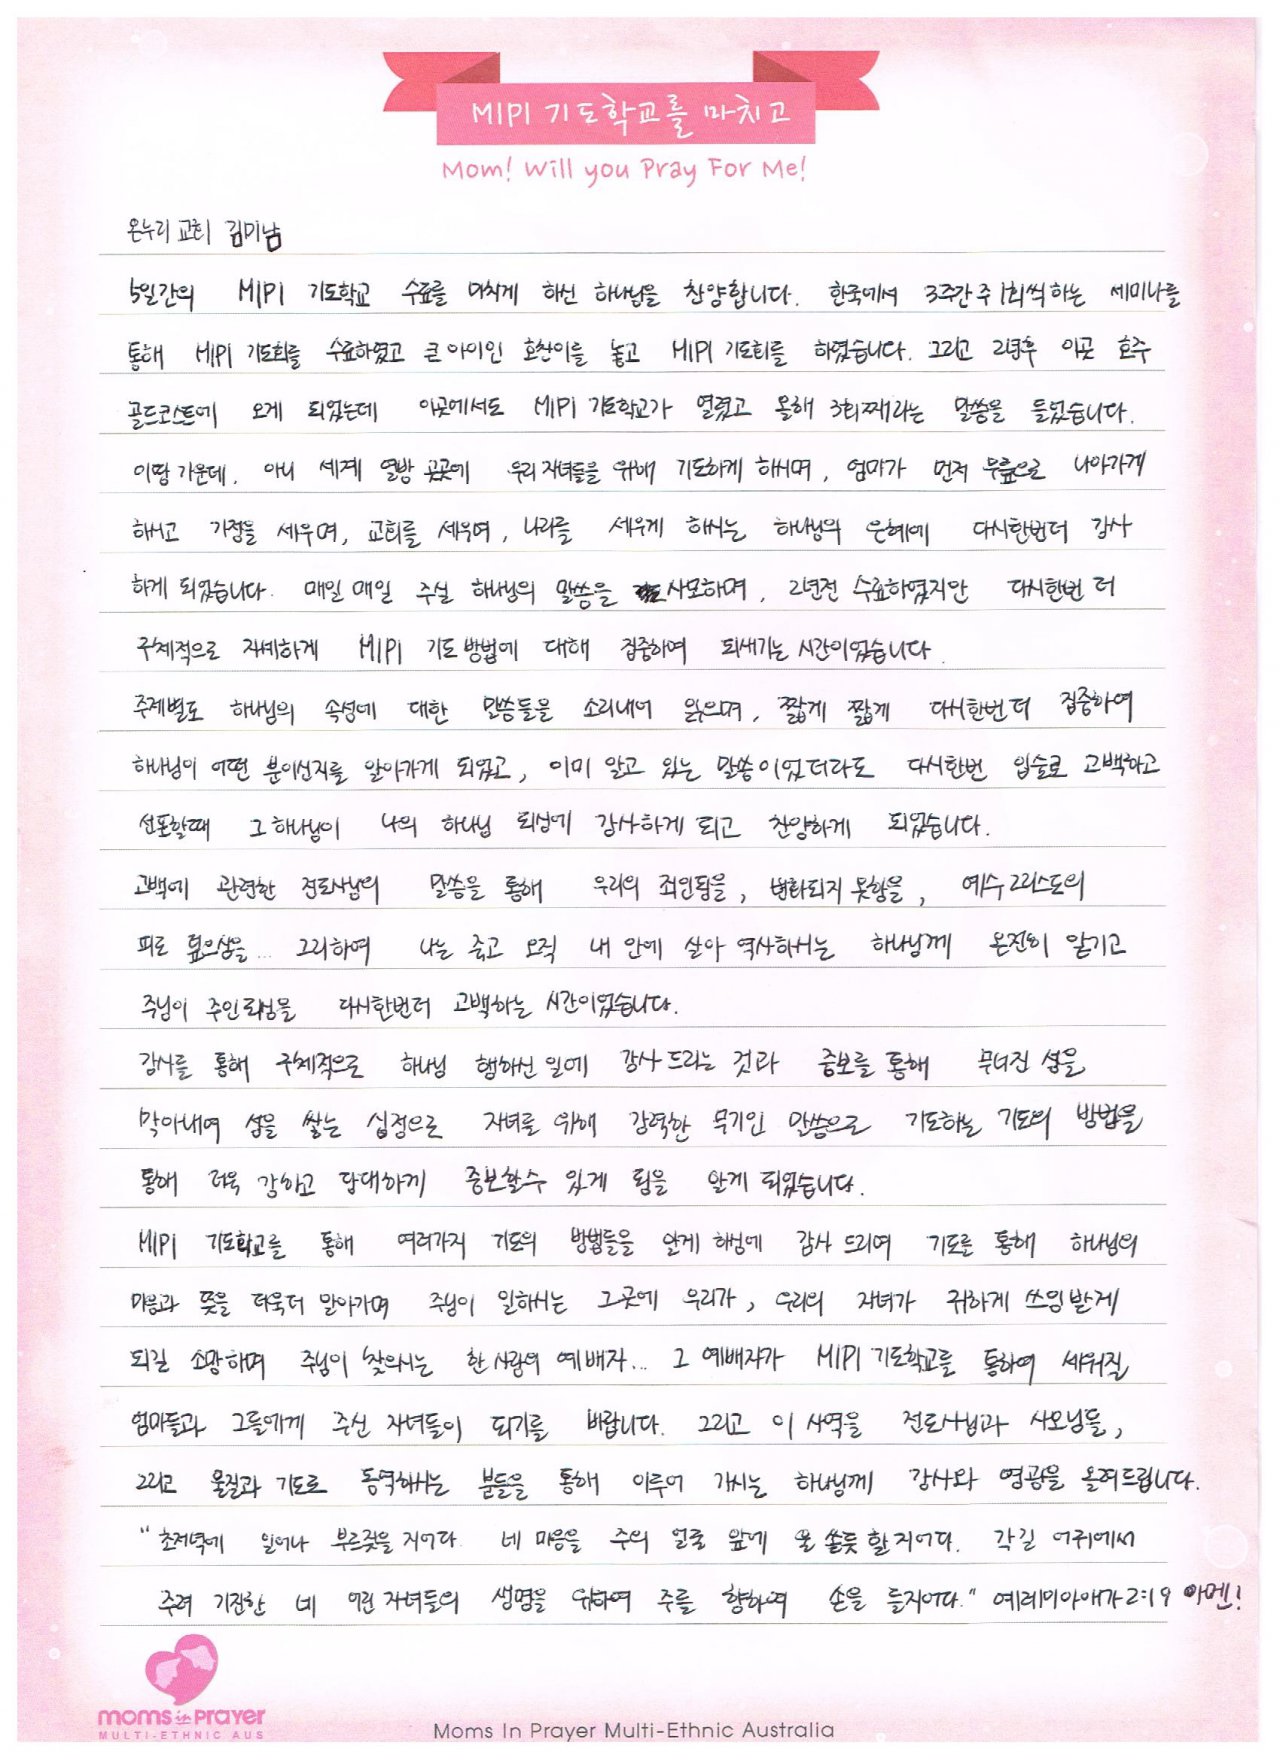 MIPI 기도학교를 마치고
Mom! Will you Pray For Me!
온누리 교회 김미남
5일간의 MIPI 기도학교 수료를 마치게 하신 하나님을 찬양합니다. 한국에서 3주간 주 1회씩 하는 세미나를
통해 MIPI 기도회를 수료하였고 큰 아이인 호찬이를 놓고 MIPI 기도회를 하였습니다. 그리고 2년후 이곳 호주
골드코스트에 오게 되었는데 이곳에서도 MIPI 기도학교가 열렸고 올해 3회째라는 말씀을 들었습니다.
이땅 가운데, 아니 세계 열방 곳곳에 우리 자녀들을 위해 기도하게 하시며, 엄마가 먼저 무릎으로 나아가게
하시고 가정을 세우며, 교회를 세우며, 나라를 세우게 하시는 하나님의 은혜에 다시한번더 감사
하게 되었습니다. 매일 매일 주실 하나님의 말씀을 사모하며, 2년전 수료하였지만 다시한번 더
구체적으로 자세하게 MIPI 기도 방법에 대해 집중하여 되새기는 시간이었습니다.
주제별로 하나님의 속성에 대한 말씀들을 소리내어 읽으며, 짧게 짧게 다시한번더 집중하여
하나님이 어떤 분이신지를 알아가게 되었고, 이미 알고 있는 말씀이었더라도 다시한번 입술로 고백하고
선포할때 그 하나님이 나의 하나님 되심에 감사하게 되고 찬양하게 되었습니다.
고백에 관련한 전도사님의 말씀을 통해 우리의 죄인됨을, 변화되지 못함을, 예수 그리스도의
피로 덮으심을... 그리하여 나는 죽고 오직 내 안에 살아 역사하시는 하나님께 온전히 맡기고
주님이 주인되심을 다시한번더 고백하는 시간이었습니다.
감사를 통해 구체적으로 하나님 행하신 일에 감사 드리는 것과 중보를 통해 무너진 성을
막아내며 성을 쌓는 심정으로 자녀를 위해 강력한 무기인 말씀으로 기도하는 기도의 방법을
통해 더욱 강하고 담대하게 중보할수 있게 됨을 알게 되었습니다.
MIPI 기도학교를 통해 여러가지 기도의 방법들을 알게 하심에 감사 드리며 기도를 통해 하나님의
마음과 뜻을 더욱더 알아가며 주님이 일하시는 그곳에 우리가, 우리의 자녀가 귀하게 쓰임받게
되길 소망하며 주님이 찾으시는 한 사람의 예배자... 그 예배자가 MIPI 기도학교를 통하여 세워질
엄마들과 그들에게 주신 자녀들이 되기를 바랍니다. 그리고 이 사역을 전도사님과 사모님들,
그리고 물질과 기도로 동역하시는 분들을 통해 이루어 가시는 하나님께 감사와 영광을 올려드립니다.
"초저녁에 일어나 부르짖을지어다 네 마음을 주의 얼굴 앞에 물 쏟듯 할지어다. 각길 어귀에서
주려 기진한 네 어린 자녀들의 생명을 위하여 주를 향하여 손을 들지어다." 예레미아애가 2:19 아멘!
moms in prayer
MULTI-ETHNIC AUS
Moms In Prayer Multi-Ethnic Australia